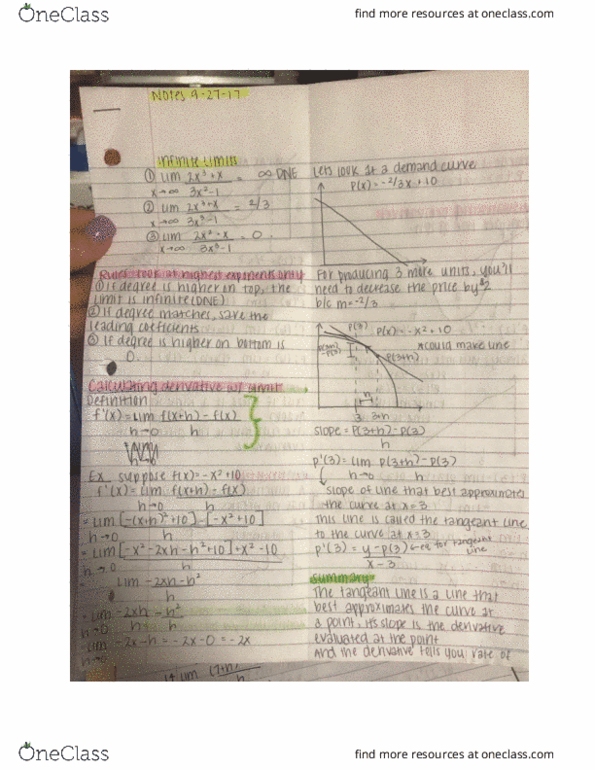 OneClass
find more resources at oneclass.com
Notes 9-27-17
Infinite Limits
① lim 2x³+x / 3x²-1 = ∞ DNE
x→∞
② lim 2x³+x / 3x³-1 = 2/3
x→∞
③ lim 2x²+x / 3x³-1 = 0
x→∞
Rules: look at highest exponents only
① if degree is higher in top, the
limit is infinite (DNE)
② if degree matches, save the
leading coefficients
③ if degree is higher on bottom is
0.
Calculating derivative w/ limit
Definition
f'(x) = lim f(x+h) - f(x)
h→0 h
Ex. suppose f(x) = -x²+10
f'(x) = lim f(x+h) - f(x)
h→0 h
= lim [-(x+h)²+10] - [-x²+10]
h→0 h
= lim [-x²-2xh-h²+10]+x²-10
h→0 h
= lim -2xh-h²
h
= lim -2xh - h²
h→0 h h
= lim -2x-h = -2x-0 = -2x
h→0
Lets look at a demand curve
P(x) = -2/3x+10
For producing 3 more units, you'll
need to decrease the price by $2
b/c m=-2/3
P(3)
P(x) = -x²+10
*could make line
P(3+h)
-P(3)
P(3+h)
h
3 3+h
slope = P(3+h)-P(3)
h
P'(3) = lim P(3+h)-P(3)
h→0 h
slope of line that best approximates
the curve at x=3
This line is called the tangeant line
to the curve at x=3
P'(3) = y-P(3) ←eq for tangeant
x-3 line
Summary
The tangeant line is a line that
best approximates the curve at
a point, its slope is the derivative
evaluated at the point
And the derivative tells you rate of
lim (7+h)
h
OneClass
find more resources at oneclass.com